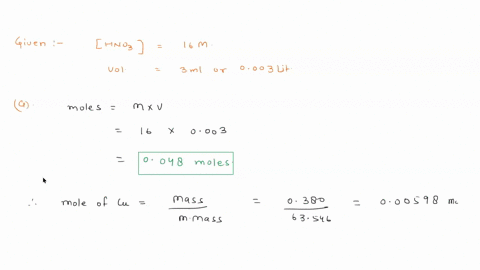 Given :- [HNO3] = 16 M.
Vol = 3ml or 0.003 Lit
(a). moles = M x V
= 16 x 0.003
= 0.048 moles
∴ mole of Cu = mass / m.mass = 0.380 / 63.546 = 0.00598 mo